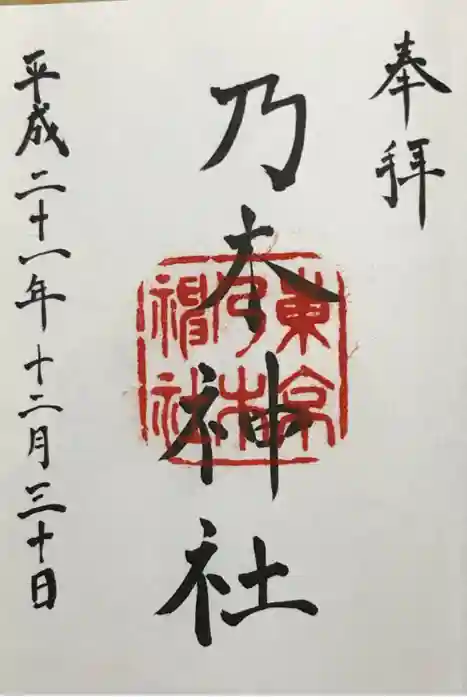 奉拝
乃木神社
東京
乃木
神社
平成二十八年十二月三十日